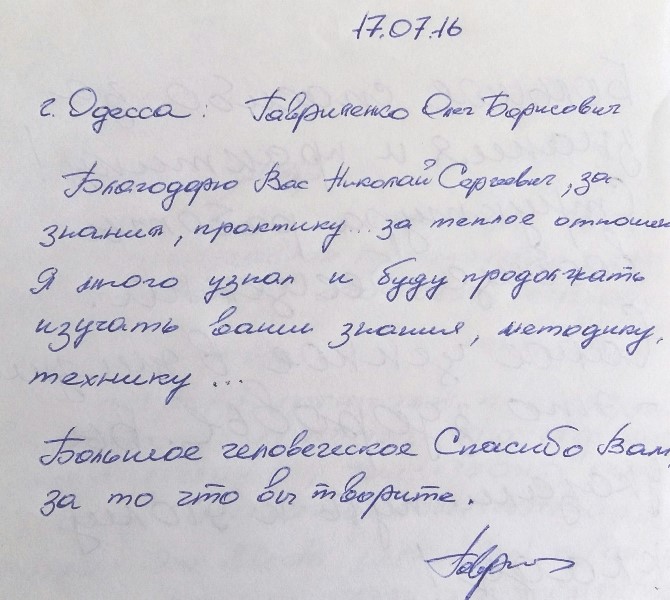 17.07.16
г. Одесса: Гавриленко Олег Борисович
Благодарю Вас Николай Сергеевич, за
знания, практику... за теплое отношен
Я много узнал и буду продолжать
изучать ваши знания, методику,
технику ...
Большое человеческое Спасибо Вам
за то что вы творите.